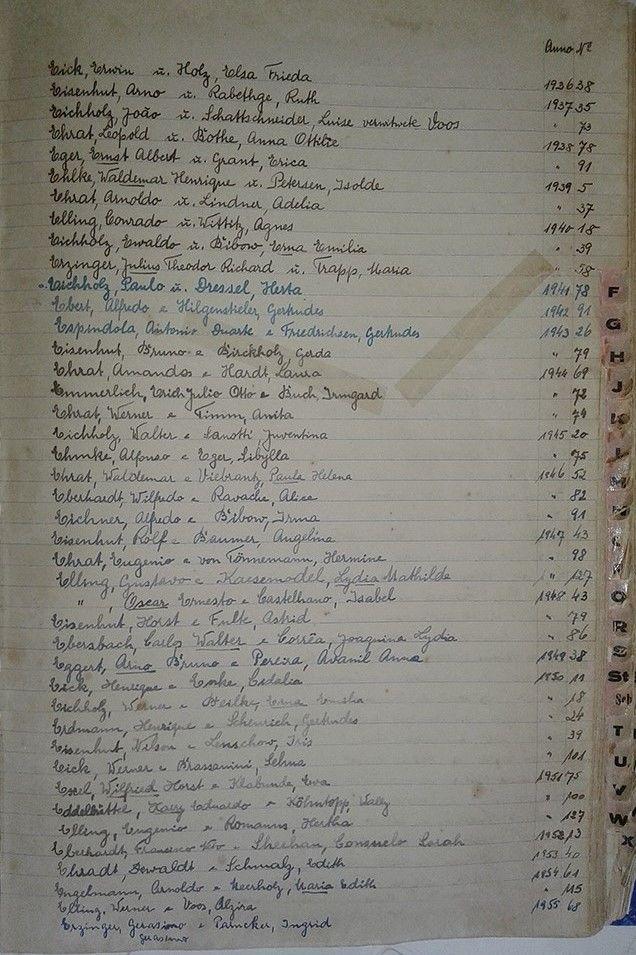 Anno Nº
Eick, Erwin u. Holz, Elsa Frieda 1936 38
Eisenhut, Arno u. Rabethge, Ruth 1937 35
Eichholz, João u. Schattschneider, Luise verwitwete Voos " 73
Ehrat, Leopold u. Bothe, Anna Ottilie 1938 78
Eger, Ernst Albert u. Grant, Erica " 91
Ehlke, Waldemar Henrique u. Petersen, Isolde 1939 5
Ehrat, Arnoldo u. Lindner, Adelia " 37
Elling, Conrado u. Wittitz, Agnes 1940 18
Eichholz, Ewaldo u. Bibow, Erna Emilia " 39
Erzinger, Julius Theodor Richard u. Trapp, Maria " 58
Eichholz, Paulo u. Dressel, Herta 1941 78
Ebert, Alfredo e Hilgenstieler, Gertrudes 1942 91
Espindola, Antonio Duarte e Friedrichsen, Gertrudes 1943 26
Eisenhut, Bruno e Birckholz, Gerda " 79
Ehrat, Amandos e Hardt, Laura 1944 69
Emmerlich, Erich Julio Otto e Buch, Irmgard " 72
Ehrat, Werner e Timm, Anita " 74
Eichholz, Walter e Zanotti Juventina 1945 20
Ehmke, Alfonso e Eger, Sibylla " 75
Ehrat, Waldemar e Viebrantz, Paula Helena 1946 52
Eberhardt, Wilfredo e Ravache, Alice " 82
Eichner, Alfredo e Bibow, Irma " 91
Eisenhut, Rolf e Baumer, Angelina 1947 43
Ehrat, Eugenio e von Könnemann, Hermine " 98
Elling, Gustavo e Kaesemodel, Lydia Mathilde " 127
" , Oscar Ernesto e Castelhano, Isabel 1948 43
Eisenhut, Horst e Falk, Astrid " 79
Ebersbach, Carlos Walter e Corrêa, Joaquina Lydia " 86
Eggert, Arno Bruno e Pereira, Avanil Anna 1949 38
Eick, Henrique e Enke, Cidalia 1950 11
Eichholz, Werner e Erna " 18
Erdmann, Henrique e Gertrudes " 24
Eisenhut, Nilson e Lenschow, Iris " 39
Eick, Werner e Brassanini, Selma " 101
Essel, Wilfried Horst e Klabunde, Eva 1951 75
Eddelbüttel, Harry Eduardo e Köhntopp, Wally " 100
Elling, Eugenio e Romanus, Hertha " 127
Eberhardt, Francisco e Sheehan, Consuelo Sarah 1952 13
Ehradt, Oswaldt e Schmalz, Edith 1953 40
Engelmann, Arnoldo e Neerholz, Maria Edith 1954 61
Elling, Werner e Voos, Alzira " 115
Erzinger, Gerasimo e Ingrid 1955 68
Gerasimo
F
G
H
J
K
L
M
N
O
R
S
St
Sch
T
U
V
W
X